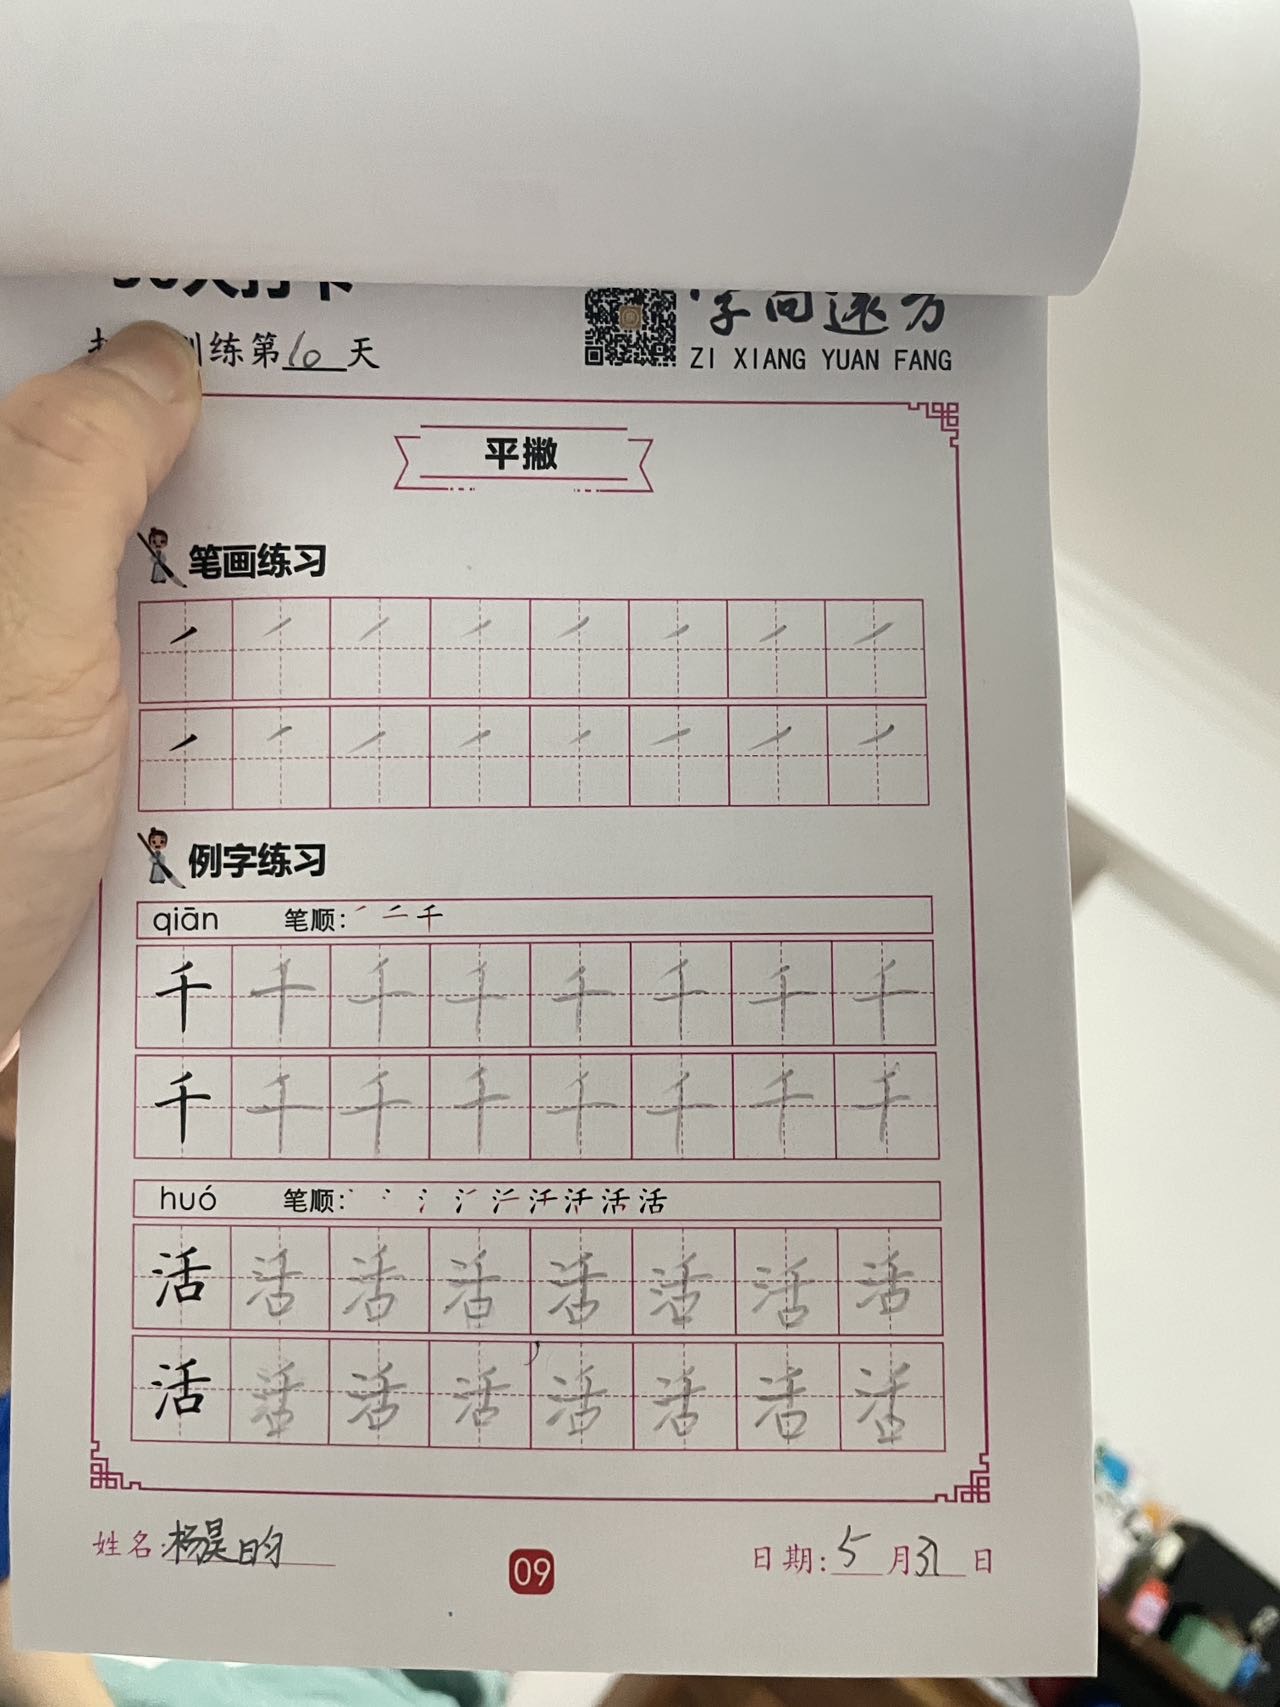 打卡训练第10天
字向远方
ZI XIANG YUAN FANG
平撇
笔画练习
例字练习
qiān 笔顺: 千
千 千 千 千 千 千 千 千
千 千 千 千 千 千 千 千
huó 笔顺: 活
活 活 活 活 活 活 活 活
活 活 活 活 活 活 活 活
姓名:杨昊昀
09
日期:5月31日